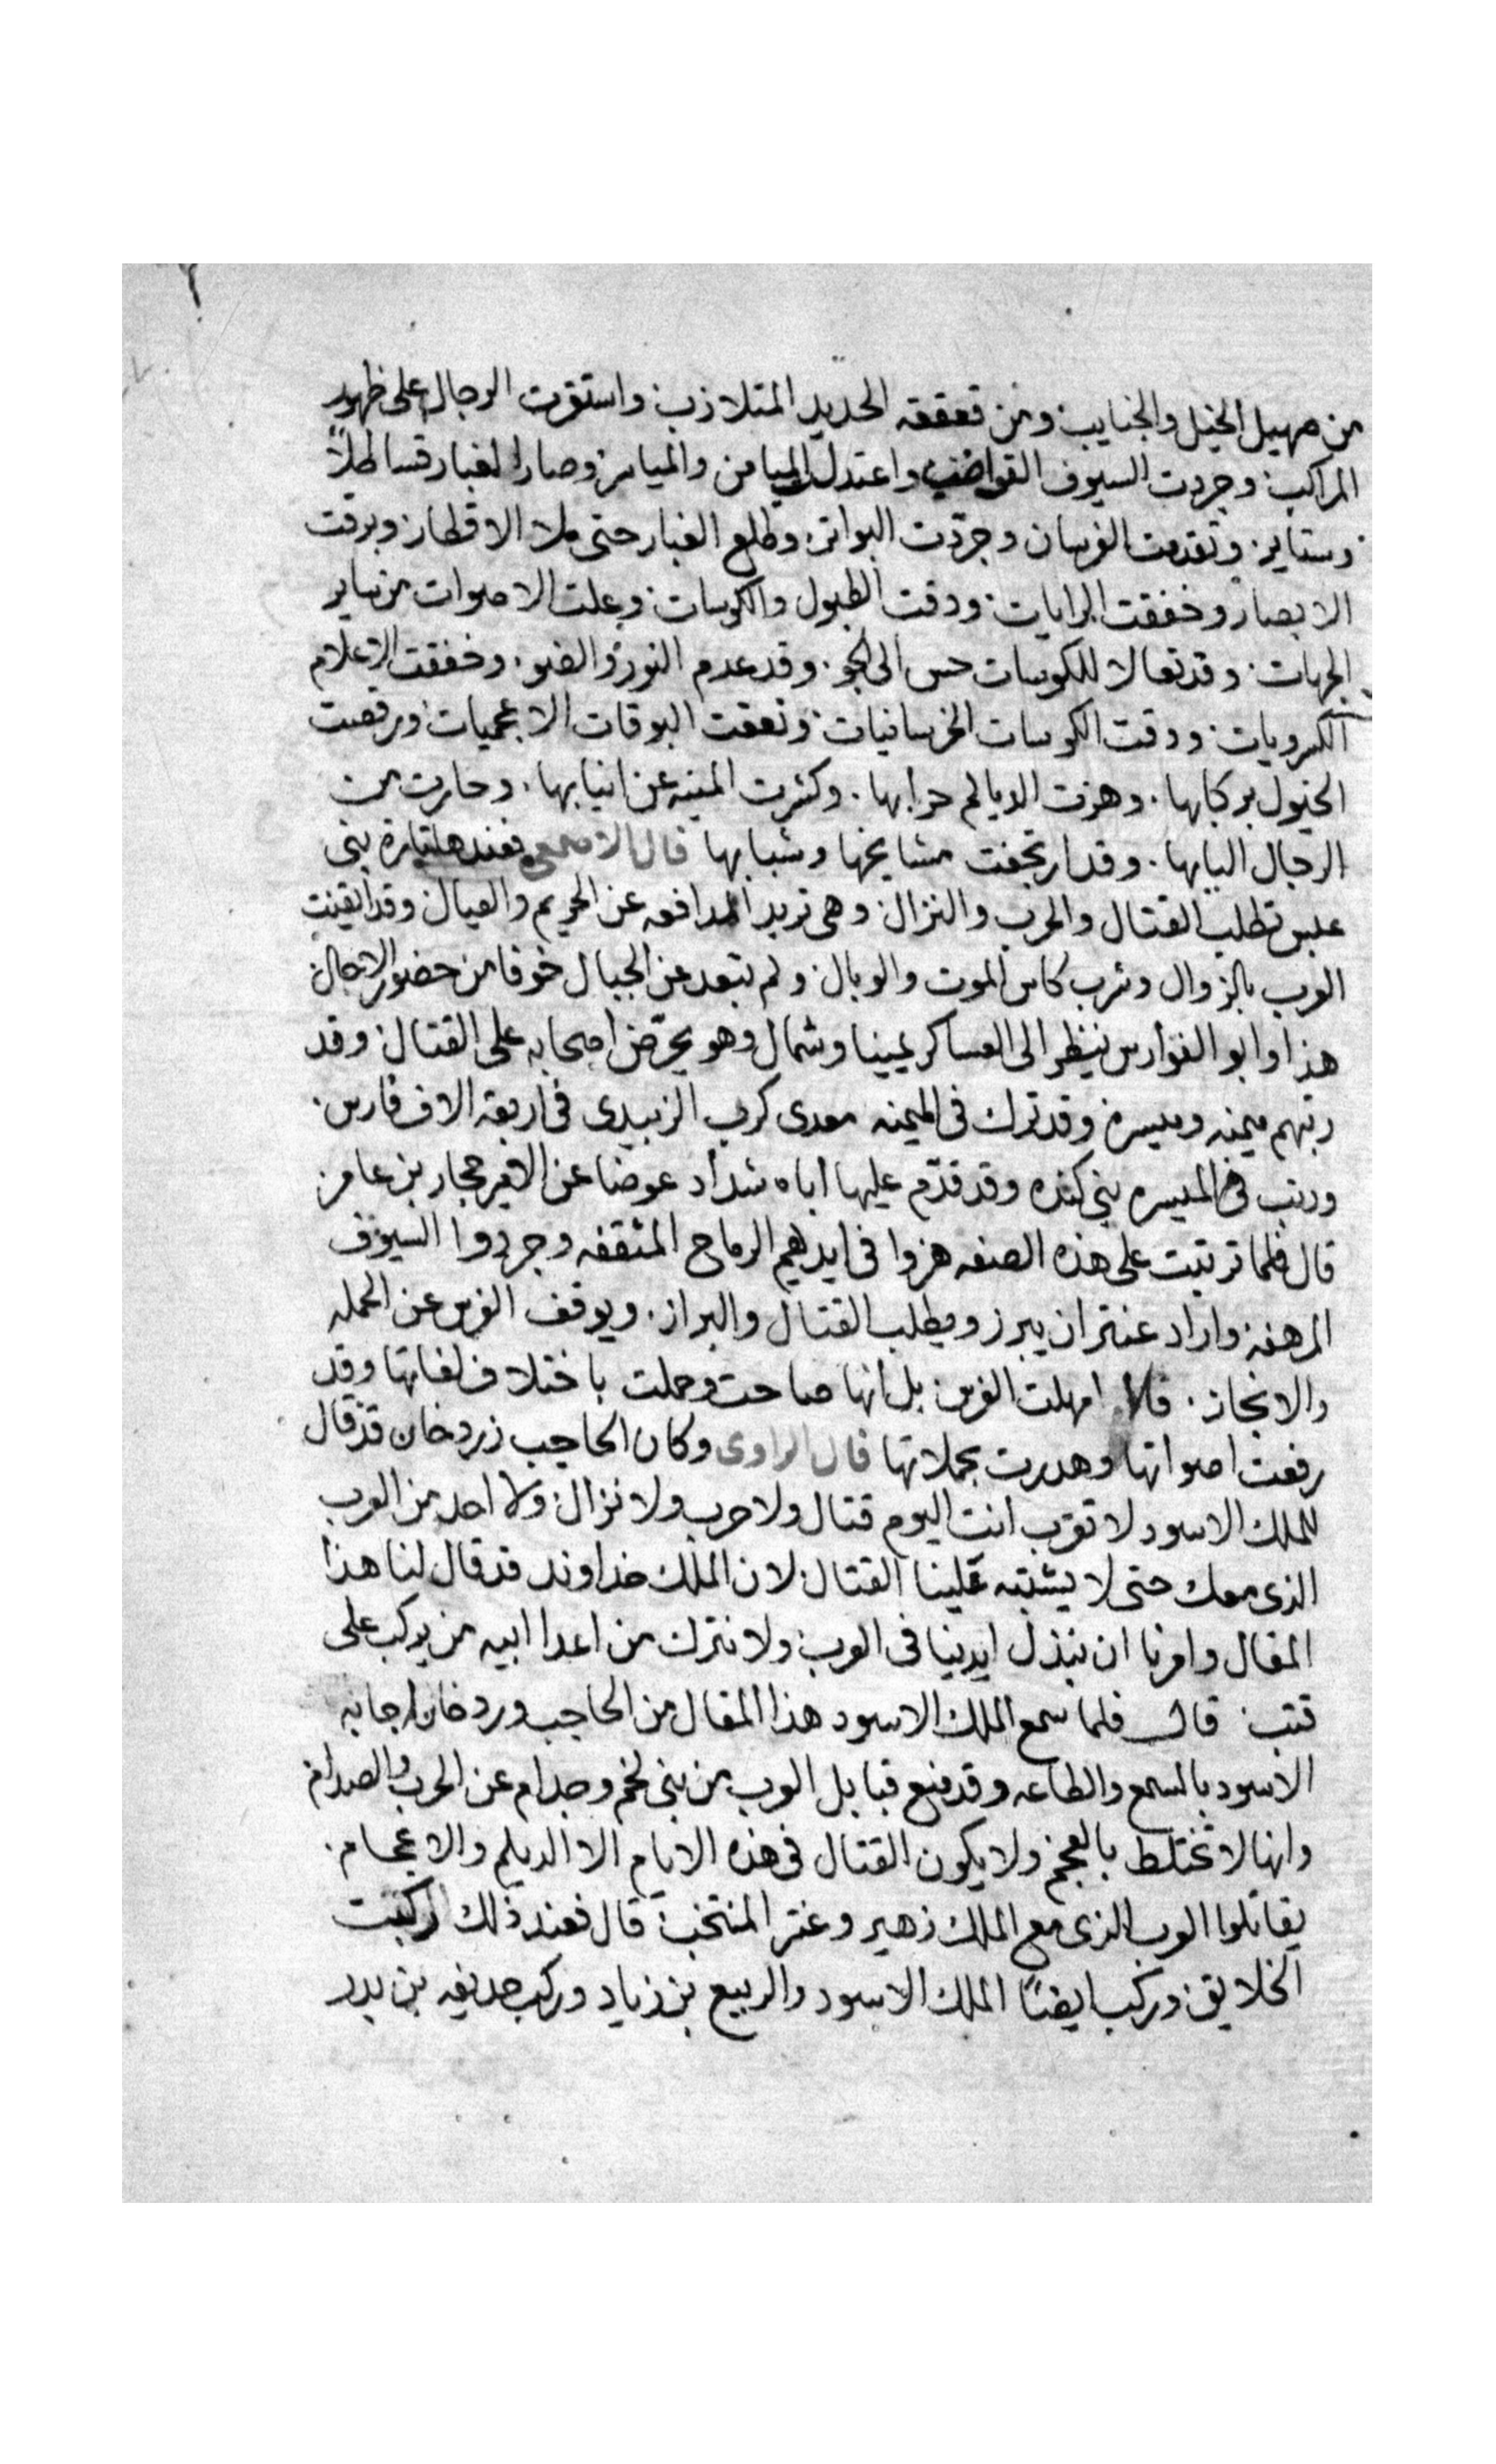 من صهيل الخيل والجنايب ومن قعقعه الحديد المتلازب واستقرت الرجال على ظهور
المراكب وجردت السيوف القواضب واعتدل الميامن والمياسر وصار الغبار قساطلاً
وستاير وتقدمت الفرسان وجرّدت البواتر وطلع الغبار حتى ملا الاقطار وبرقت
الابصار وخفقت الرايات ودقت الطبول والكوسات وعلت الاصوات من ساير
الجهات وقد تعالا للكوسات حس الى الجو وقد عدم النور والضو وخفقت الاعلام
الكسرويات ودقت الكوسات الخرسانيات ونعقت البوقات الاعجميات ورقصت
الخيول بركابها وهزت الديالم حرابها وكشرت المنيه عن انيابها وحارت من
الرجال البابها وقد ارتجفت مشايخها وشبابها قال الاصمعي فعندها بنى
عبس تطلب القتال والحرب والنزال وهى تريد المدافعه عن الحريم والعيال وقد ايقنت
العرب بالزوال وشرب كاس الموت والوبال ولم تبعد عن الجبال خوفا من حضور الاجال
هذا وابو الفوارس ينظر الى العساكر يمينا وشمال وهو يحرّض اصحابه على القتال وقد
رتبهم ميمنه وميسره وقد ترك فى الميمنه معدى كرب الزبيدى فى اربعة الاف فارس
ورتب فى الميسره بنى كنده وقد قدّم عليها اباه شداد عوضا عن الامير حجار بن عامر
قال فلما ترتبت على هذه الصفه هزوا فى ايديهم الرماح المثقفه وجردوا السيوف
المرهفه واراد عنتر ان يبرز ويطلب القتال والبراز ويوقف الفرس عن الحمله
والانجاز فلا امهلت الفرس بل انها صاحت وحملت باختلاف لغاتها وقد
رفعت اصواتها وهدرت بحملاتها قال الراوى وكان الحاجب زردخان قد قال
للملك الاسود لا تقرب انت اليوم قتال ولا حرب ولا نزال ولا احد من العرب
الذى معك حتى لا يشتبه علينا القتال لان الملك خداوند قد قال لنا هذا
المقال وامرنا ان نبذل ايدينا فى العرب ولا نترك من اعدا ابيه من يركب على
قتب قال فلما سمع الملك الاسود هذا المقال من الحاجب وردخان اجابه
الاسود بالسمع والطاعه وقد منع قبايل العرب من بنى لخم وجدام عن الحرب والصدام
وانها لا تختلط بالعجم ولا يكون القتال فى هذه الايام الا الديلم والاعجام
يقاتلوا العرب الذى مع الملك زهير وعنتر المنتخب قال فعند ذلك ركبت
الخلايق وركب ايضاً الملك الاسود والربيع بن زياد وركب حديفه بن بدر